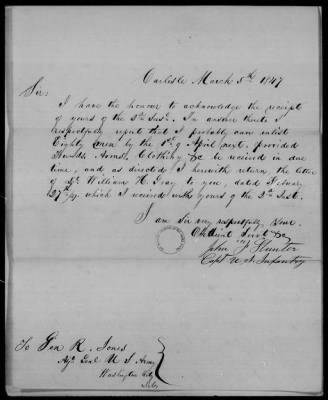 Carlisle March 5th 1847
Sir:
I have the honour to acknowledge the receipt
of yours of the 2th Inst. In answer thereto I
respectfully report that I probably can enlist
Eighty men by the 1st of April next, provided
Blanks Arms, Clothing &c be received in due
time, and, as directed I herewith return the letter
of William H. Gray to you, dated
27th which I received with yours of the 2th Inst.
I am Sir very respectfully Your
Obedient Servt &c
John Hunter
Capt U S Infantry
To Gen R. Jones
Adjt Genl U S Army
Washington City